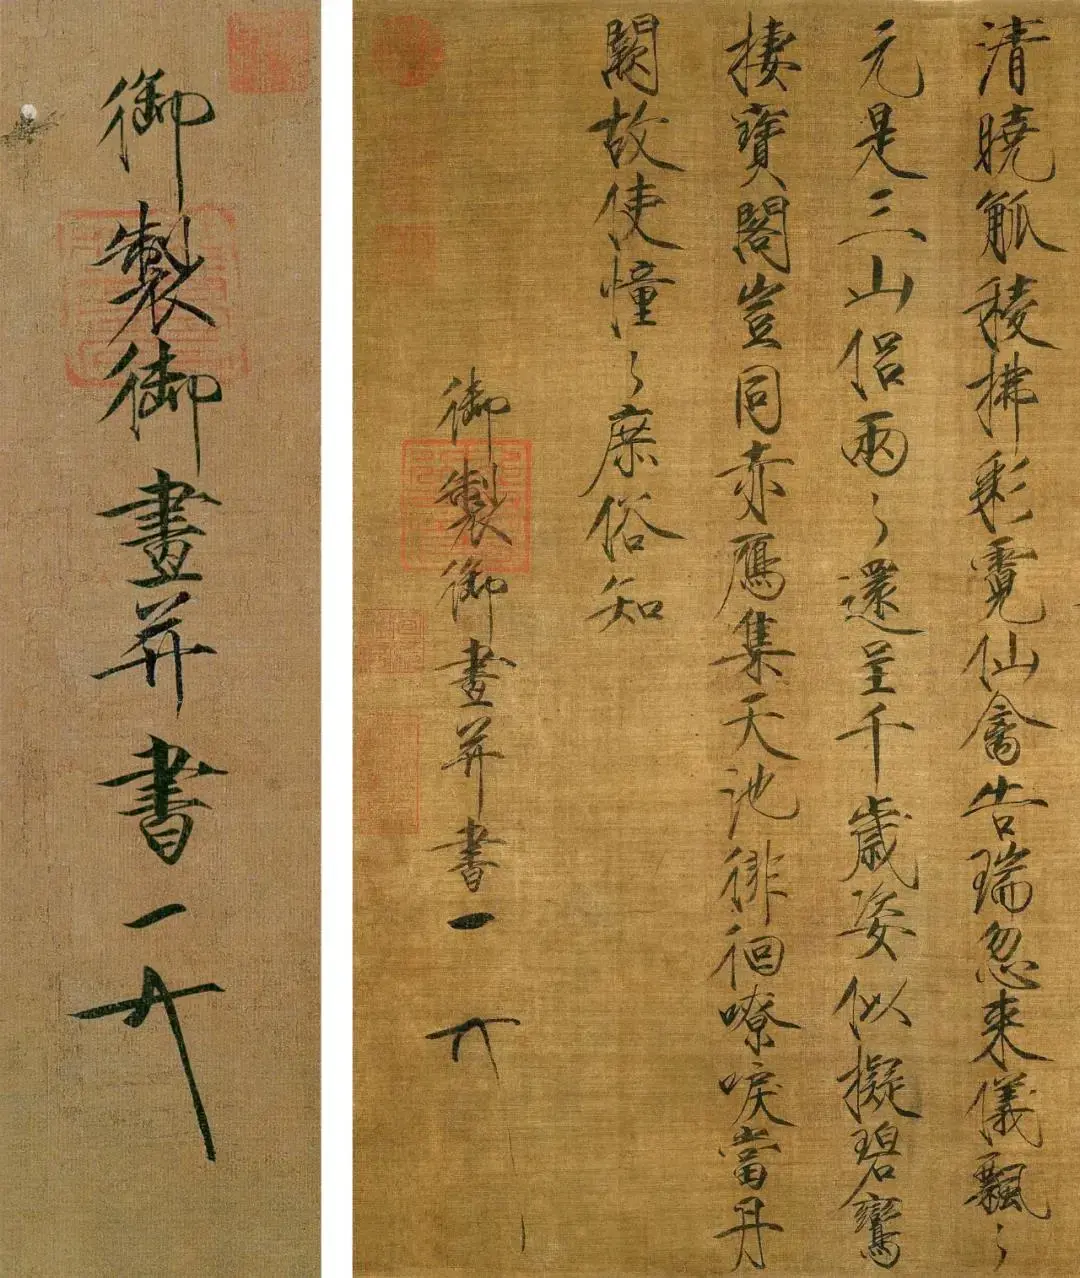 清曉觚稜拂彩霓仙禽告瑞忽来儀飄〻
元是三山侣兩〻還呈千歲姿似擬碧鸞
棲寶閣豈同赤鴈集天池徘徊嘹唳當丹
闕故使憧〻庶俗知
御製御畫并書
御製御畫并書